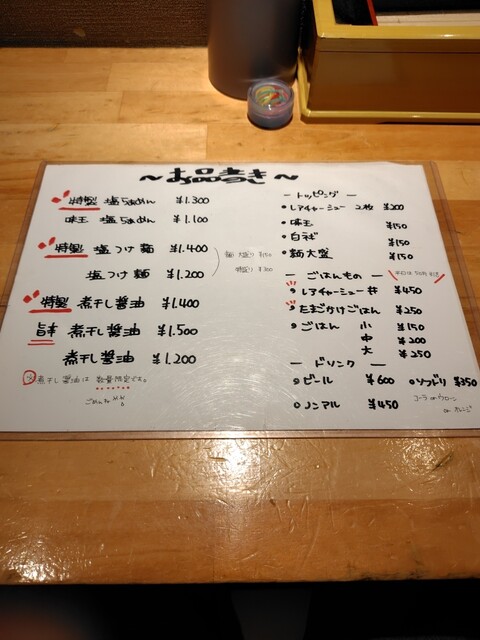 ～お品書き～
特製 塩らぁめん ¥1.300
味玉 塩らぁめん ¥1.100
特製 塩つけ麺 ¥1.400
塩つけ麺 ¥1.200
麺 大盛り ¥150
特盛り ¥300
特製 煮干し醤油 ¥1.400
旨辛 煮干し醤油 ¥1.500
煮干し醤油 ¥1.200
煮干し醤油は 数量限定です。
ごめんネ M.W
ー トッピング ー
・レアチャーシュー 2枚 ¥200
・味玉 ¥150
・白ネギ ¥150
・麺大盛 ¥150
ー ごはんもの ー
・レアチャーシュー丼 ¥450
・たまごかけごはん ¥250
・ごはん 小 ¥150
中 ¥200
大 ¥250
ー ドリンク ー
・ビール ¥600
・ソフドリ ¥350
コーラ or ウーロン
or オレンジ
・ノンアル ¥450